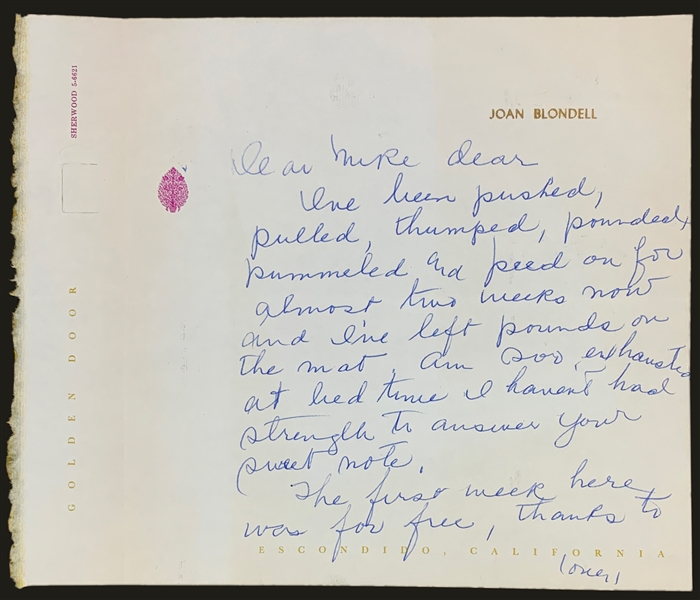 SHERWOOD 5-6621
JOAN BLONDELL
Dear Mike dear
I've been pushed,
pulled, thumped, pounded,
pummeled and peed on for
almost two weeks now
and I've left pounds on
the mat. Am soo exhausted
at bed time I haven't had
strength to answer your
sweet note.
The first week here
was for free, thanks to
GOLDEN DOOR
ESCONDIDO, CALIFORNIA
(over)